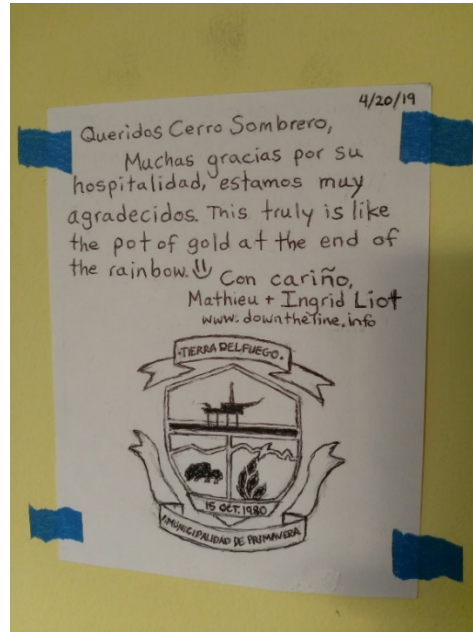 4/20/19
Queridos Cerro Sombrero,
Muchas gracias por su
hospitalidad, estamos muy
agradecidos. This truly is like
the pot of gold at the end of
the rainbow.
Con cariño,
Mathieu + Ingrid Liot
www.downtheline.info
·TIERRA DEL FUEGO·
15 OCT. 1980
I.MUNICIPALIDAD DE PRIMAVERA